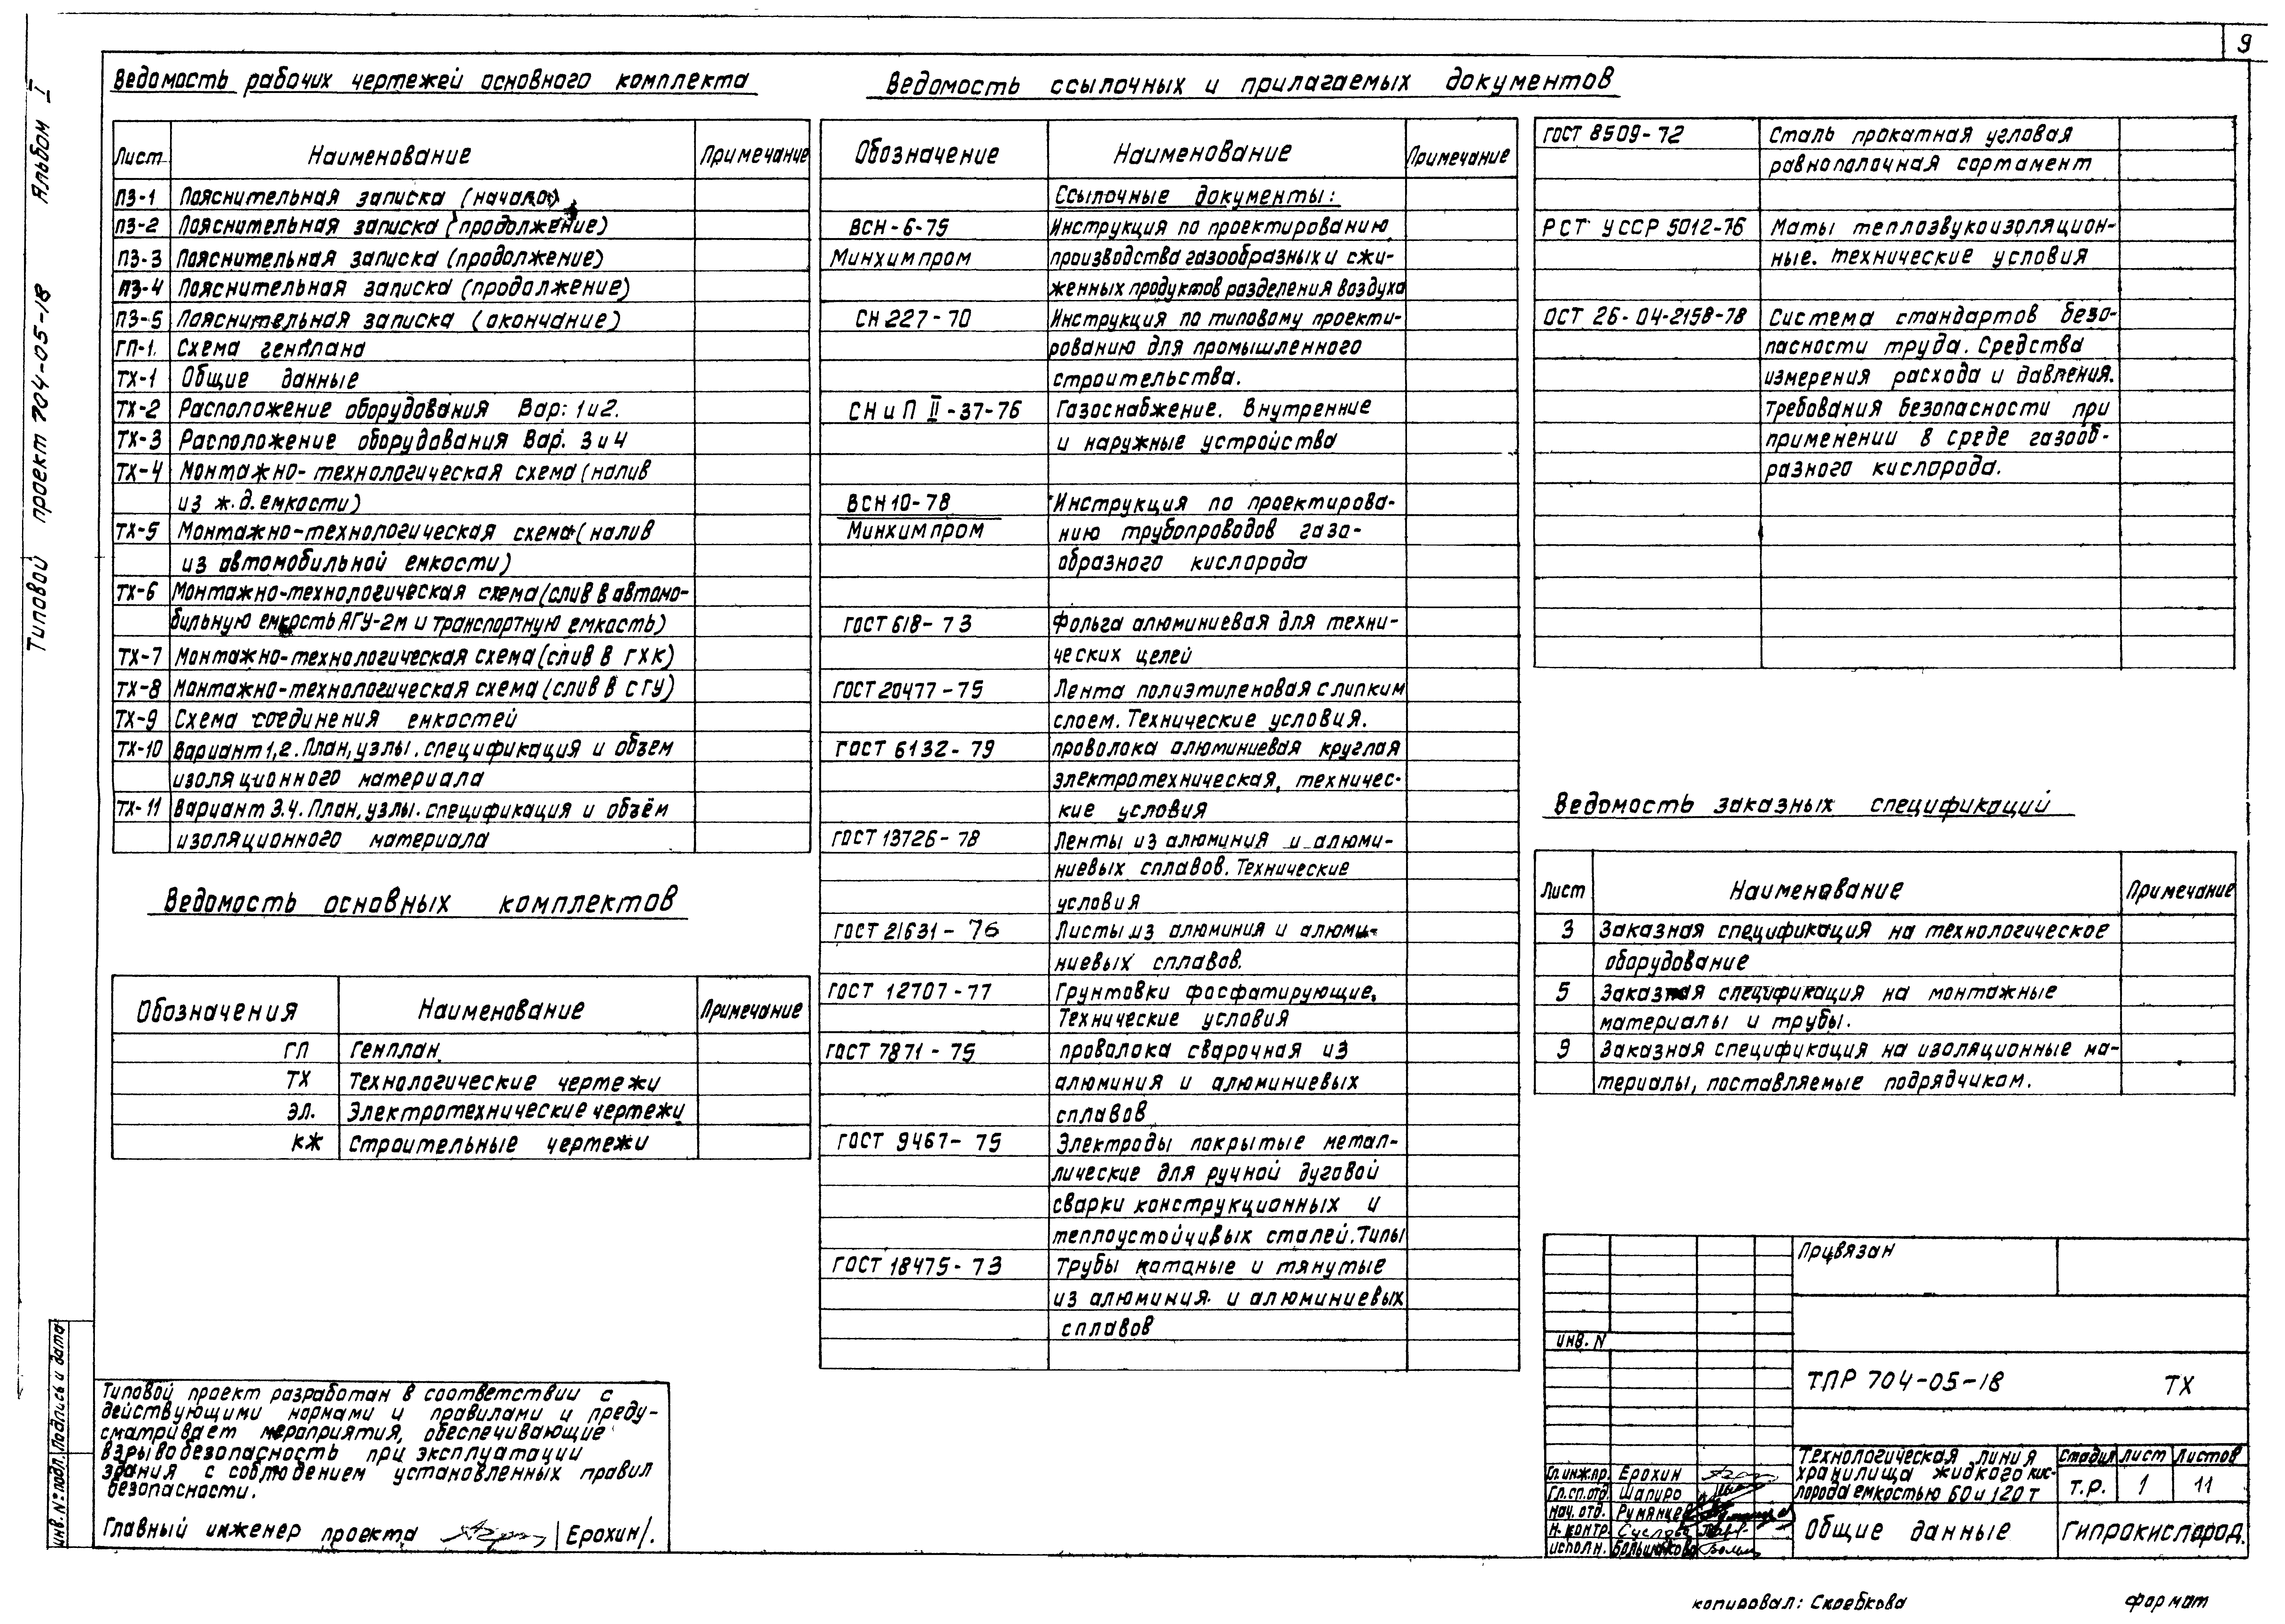 9
Альбом I
Типовой проект 704-05-18
Ведомость рабочих чертежей основного комплекта
Лист Наименование Примечание
ПЗ-1 Пояснительная записка (начало)
ПЗ-2 Пояснительная записка (продолжение)
ПЗ-3 Пояснительная записка (продолжение)
ПЗ-4 Пояснительная записка (продолжение)
ПЗ-5 Пояснительная записка (окончание)
ГП-1 Схема генплана
ТХ-1 Общие данные
ТХ-2 Расположение оборудования Вар: 1 и 2.
ТХ-3 Расположение оборудования Вар. 3 и 4
ТХ-4 Монтажно-технологическая схема (налив
из ж.д. емкости)
ТХ-5 Монтажно-технологическая схема (налив
из автомобильной емкости)
ТХ-6 Монтажно-технологическая схема (слив в автомо-
бильную емкость АГУ-2м и транспортную емкость)
ТХ-7 Монтажно-технологическая схема (слив в ГХК)
ТХ-8 Монтажно-технологическая схема (слив в СГУ)
ТХ-9 Схема соединения емкостей
ТХ-10 Вариант 1,2. План, узлы. спецификация и объем
изоляционного материала
ТХ-11 Вариант 3.4. План, узлы. спецификация и объём
изоляционного материала
Ведомость основных комплектов
Обозначения Наименование Примечание
ГП Генплан
ТХ Технологические чертежи
ЭЛ. Электротехнические чертежи
КЖ Строительные чертежи
Типовой проект разработан в соответствии с
действующими нормами и правилами и преду-
сматривает мероприятия, обеспечивающие
взрывобезопасность при эксплуатации
здания с соблюдением установленных правил
безопасности.
Главный инженер проекта /Ерохин/.
Ведомость ссылочных и прилагаемых документов
Обозначение Наименование Примечание
Ссылочные документы:
ВСН-6-75 Инструкция по проектированию
Минхимпром производства газообразных и сжи-
женных продуктов разделения воздуха
СН 227-70 Инструкция по типовому проекти-
рованию для промышленного
строительства.
СН и П II-37-76 Газоснабжение. Внутренние
и наружные устройства
ВСН 10-78 Инструкция по проектирова-
Минхимпром нию трубопроводов газо-
образного кислорода
ГОСТ 618-73 Фольга алюминиевая для техни-
ческих целей
ГОСТ 20477-75 Лента полиэтиленовая с липким
слоем. Технические условия.
ГОСТ 6132-79 проволока алюминиевая круглая
электротехническая, техничес-
кие условия
ГОСТ 13726-78 Ленты из алюминия и алюми-
ниевых сплавов. Технические
условия
ГОСТ 21631-76 Листы из алюминия и алюми-
ниевых сплавов.
ГОСТ 12707-77 Грунтовки фосфатирующие.
Технические условия
ГОСТ 7871-75 проволока сварочная из
алюминия и алюминиевых
сплавов
ГОСТ 9467-75 Электроды покрытые метал-
лические для ручной дуговой
сварки конструкционных и
теплоустойчивых сталей. Типы
ГОСТ 18475-73 Трубы катаные и тянутые
из алюминия и алюминиевых
сплавов
ГОСТ 8509-72 Сталь прокатная угловая
равнополочная сортамент
РСТ УССР 5012-76 Маты теплозвукоизоляцион-
ные. технические условия
ОСТ 26-04-2158-78 Система стандартов безо-
пасности труда. Средства
измерения расхода и давления.
Требования безопасности при
применении в среде газооб-
разного кислорода.
Ведомость заказных спецификаций
Лист Наименование Примечание
3 Заказная спецификация на технологическое
оборудование
5 Заказная спецификация на монтажные
материалы и трубы.
9 Заказная спецификация на изоляционные ма-
териалы, поставляемые подрядчиком.
Привязан
инв. N
ТПР 704-05-18 ТХ
Технологическая линия
хранилища жидкого кис-
лорода емкостью 60 и 120 т
Стадия Лист Листов
Т.Р. 1 11
Гл.инж.пр. Ерохин
Гл.сп.отд. Шапиро
Нач. отд. Румянцев
Н. контр.
исполн.
Общие данные
Гипрокислород.
инв. № подл. Подпись и дата
копировал: Скребкова
формат